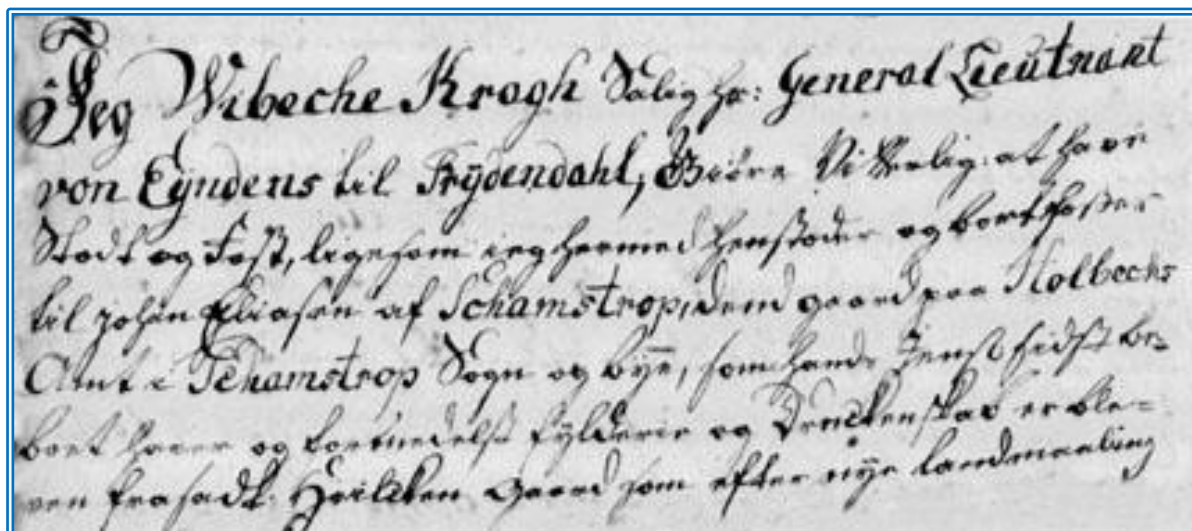 Jeg Wibeche Krogh Salig hr: General Lieutnant
von Eyndens til Frydendahl, Giöre Vitterlig: at have
Stedt og Fest, ligesom ieg hermed henstæder og bortfæster
til johan Eliasen af Schamstrop, dend gaard paa Holbechs
Amt i Schamstrop Sogn og bÿe, som hand sidst be-
boet haver og formedelst fylderie og Druckenskab er ble-
ven frasadt. Hvilcken Gaard som efter nye landmaaling